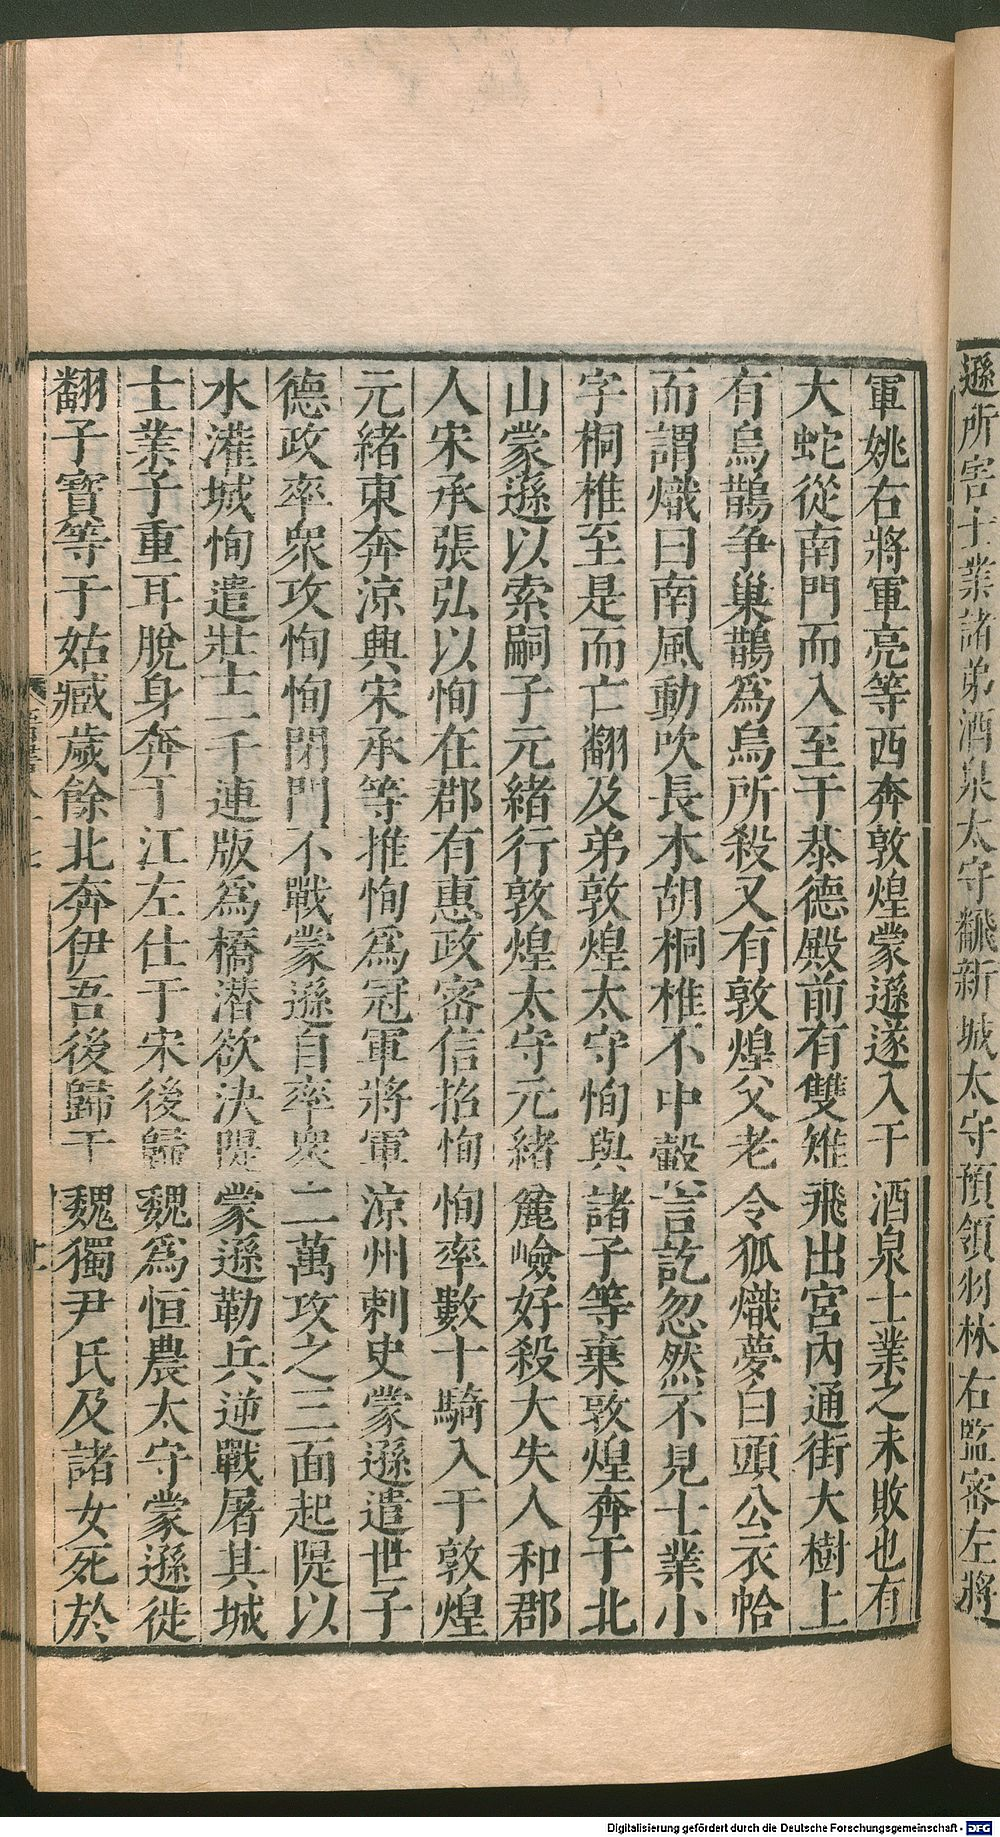 遜所害士業諸弟酒泉太守翻新城太守預領羽林右監密左將
軍姚右將軍亮等西奔敦煌蒙遜遂入于酒泉士業之未敗也有
大蛇從南門而入至于恭德殿前有雙雉飛出宮內通街大樹上
有烏鵲爭巢鵲爲烏所殺又有敦煌父老令狐熾夢白頭公衣帢
而謂熾曰南風動吹長木胡桐椎不中轂言訖忽然不見士業小
字桐椎至是而亡翻及弟敦煌太守恂與諸子等棄敦煌奔于北
山蒙遜以索嗣子元緒行敦煌太守元緒麄嶮好殺大失人和郡
人宋承張弘以恂在郡有惠政密信招恂恂率數十騎入于敦煌
元緒東奔涼興宋承等推恂爲冠軍將軍涼州刺史蒙遜遣世子
德政率衆攻恂恂閉門不戰蒙遜自率衆二萬攻之三面起隄以
水灌城恂遣壯士一千連版爲橋潛欲決隄蒙遜勒兵逆戰屠其城
士業子重耳脫身奔于江左仕于宋後歸魏爲恒農太守蒙遜徙
翻子寶等于姑臧歲餘北奔伊吾後歸于魏獨尹氏及諸女死於
Digitalisierung gefördert durch die Deutsche Forschungsgemeinschaft - DFG